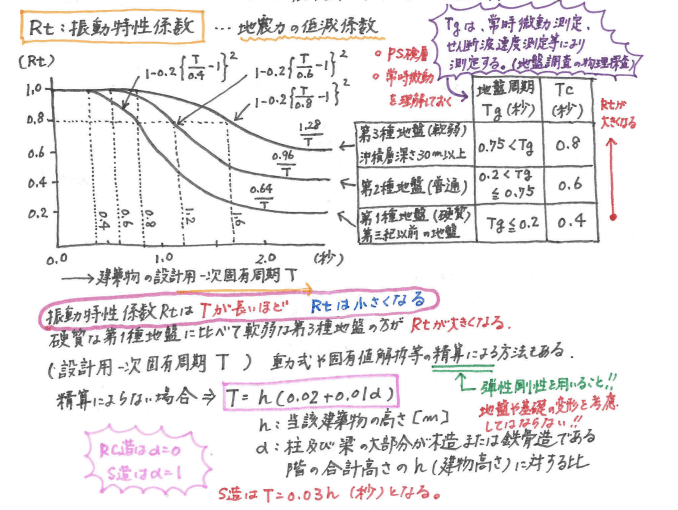 Rt:振動特性係数 … 地震力の低減係数
Tgは、常時微動測定、
せん断波速度測定等により
測定する。(地盤調査の物理探査)
○ PS検層
○ 常時微動
を理解しておく
(Rt)
1-0.2{T/0.4-1}²
1-0.2{T/0.6-1}²
1-0.2{T/0.8-1}²
1.0
0.8
0.6
0.4
0.2
1.28/T
0.96/T
0.64/T
0.4
0.6
0.8
1.2
1.6
0.0 1.0 2.0 (秒)
→建築物の設計用一次固有周期T
地盤周期 Tg(秒) Tc (秒)
第3種地盤(軟弱) 沖積層深さ30m以上 0.75<Tg 0.8
第2種地盤(普通) 0.2<Tg≦0.75 0.6
第1種地盤(硬質) 第三紀以前の地盤 Tg≦0.2 0.4
Rtが
大きくなる
振動特性係数RtはTが長いほど Rtは小さくなる
硬質な第1種地盤に比べて軟弱な第3種地盤の方がRtが大きくなる.
(:設計用一次固有周期T) 動式や固有値解析等の精算による方法もある.
弾性剛性を用いること!!
地盤や基礎の変形を考慮
してはならない!!
精算によらない場合⇒ T=h(0.02+0.01α)
h:当該建築物の高さ[m]
α:柱及び梁の大部分が木造または鉄骨造である
階の合計高さのh(建物高さ)に対する比
RC造はα=0
S造はα=1
S造はT=0.03h(秒)となる。